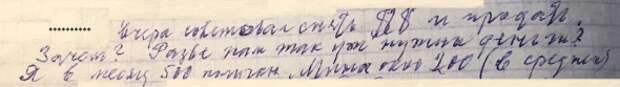 ........... Вчера советовал снять ДВ и продать.
Зачем? Разве нам так уж нужны деньги?
Я в месяц 500 получаю, Миша около 200 (в среднем)